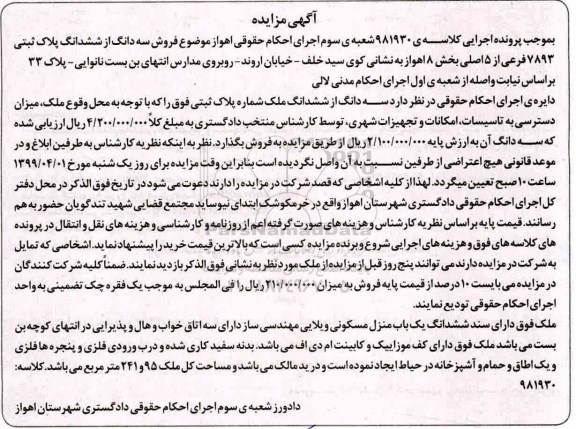 آگهی مزایده
بموجب پرونده اجرایی کلاسه ی ۹۸۱۹۳۰ شعبه ی سوم اجرای احکام حقوقی اهواز موضوع فروش سه دانگ از ششدانگ پلاک ثبتی
۷۸۹۳ فرعی از ۵ اصلی بخش ۸ اهواز به نشانی کوی سید خلف - خیابان اروند - روبروی مدارس انتهای بن بست نانوایی - پلاک ۳۳
براساس نیابت واصله از شعبه ی اول اجرای احکام مدنی لالی
دایره ی اجرای احکام حقوقی در نظر دارد سه دانگ از ششدانگ ملک شماره پلاک ثبتی فوق را که با توجه به محل وقوع ملک، میزان
دسترسی به تاسیسات، امکانات و تجهیزات شهری، توسط کارشناس منتخب دادگستری به مبلغ کلاً ۴/۲۰۰/۰۰۰/۰۰۰ ریال ارزیابی شده
که سه دانگ آن به ارزش پایه ۲/۱۰۰/۰۰۰/۰۰۰ ریال از طریق مزایده به فروش بگذارد. نظر به اینکه نظریه کارشناس به طرفین ابلاغ و در
موعد قانونی هیچ اعتراضی از طرفین نسبت به آن واصل نگردیده است بنابراین وقت مزایده برای روز یک شنبه مورخ ۱۳۹۹/۰۴/۰۱
ساعت ۱۰ صبح تعیین میگردد. لهذا از کلیه اشخاصی که قصد شرکت در مزایده را دارند دعوت می شود در تاریخ فوق الذکر در محل دفتر
کل اجرای احکام حقوقی دادگستری شهرستان اهواز واقع در خرمکوشک ابتدای نیوساید مجتمع قضایی شهید تندگویان حضور به هم
رسانند. قیمت پایه براساس نظریه کارشناس و هزینه های صورت گرفته اعم از روزنامه و کارشناسی و هزینه های نقل و انتقال در پرونده
های کلاسه های فوق و هزینه های اجرایی شروع و برنده مزایده کسی است که بالاترین قیمت خرید را پیشنهاد نماید. اشخاصی که تمایل
به شرکت در مزایده دارند می توانند پنج روز قبل از مزایده از ملک مورد نظر به نشانی فوق الذکر بازدید نمایند. ضمناً کلیه شرکت کنندگان
در مزایده می بایست ۱۰ درصد از قیمت پایه فروش به میزان ۲۱۰/۰۰۰/۰۰۰ ریال را فی المجلس به موجب یک فقره چک تضمینی به واحد
اجرای احکام حقوقی تودیع نمایند.
ملک فوق دارای سند ششدانگ یک باب منزل مسکونی ویلایی مهندسی ساز دارای سه اتاق خواب و هال و پذیرایی در انتهای کوچه بن
بست می باشد ملک فوق دارای کف موزاییک و کابینت ام دی اف می باشد. بدنه سفید کاری شده و درب ورودی فلزی و پنجره ها فلزی
و یک اطاق و حمام و آشپزخانه در حیاط ایجاد نموده است و در ید مالک می باشد و مساحت کل ملک ۹۵ و ۲۴۱ متر مربع می باشد. کلاسه:
۹۸۱۹۳۰
دادورز شعبه ی سوم اجرای احکام حقوقی دادگستری شهرستان اهواز